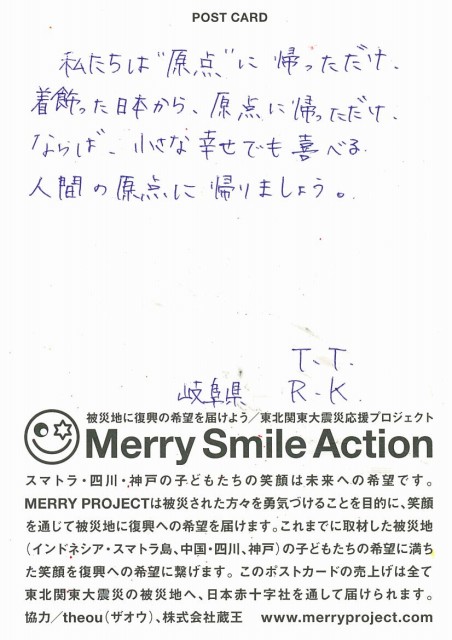 POST CARD
私たちは"原点"に帰っただけ、
着飾った日本から、原点に帰っただけ、
ならば、小さな幸せでも喜べる
人間の原点に帰りましょう。
T.T.
岐阜県 R.K.
被災地に復興の希望を届けよう／東北関東大震災応援プロジェクト
Merry Smile Action
スマトラ・四川・神戸の子どもたちの笑顔は未来への希望です。
MERRY PROJECTは被災された方々を勇気づけることを目的に、笑顔
を通じて被災地に復興への希望を届けます。これまでに取材した被災地
（インドネシア・スマトラ島、中国・四川、神戸）の子どもたちの希望に満ち
た笑顔を復興への希望に繋げます。このポストカードの売上げは全て
東北関東大震災の被災地へ、日本赤十字社を通して届けられます。
協力／theou（ザオウ）、株式会社蔵王　www.merryproject.com